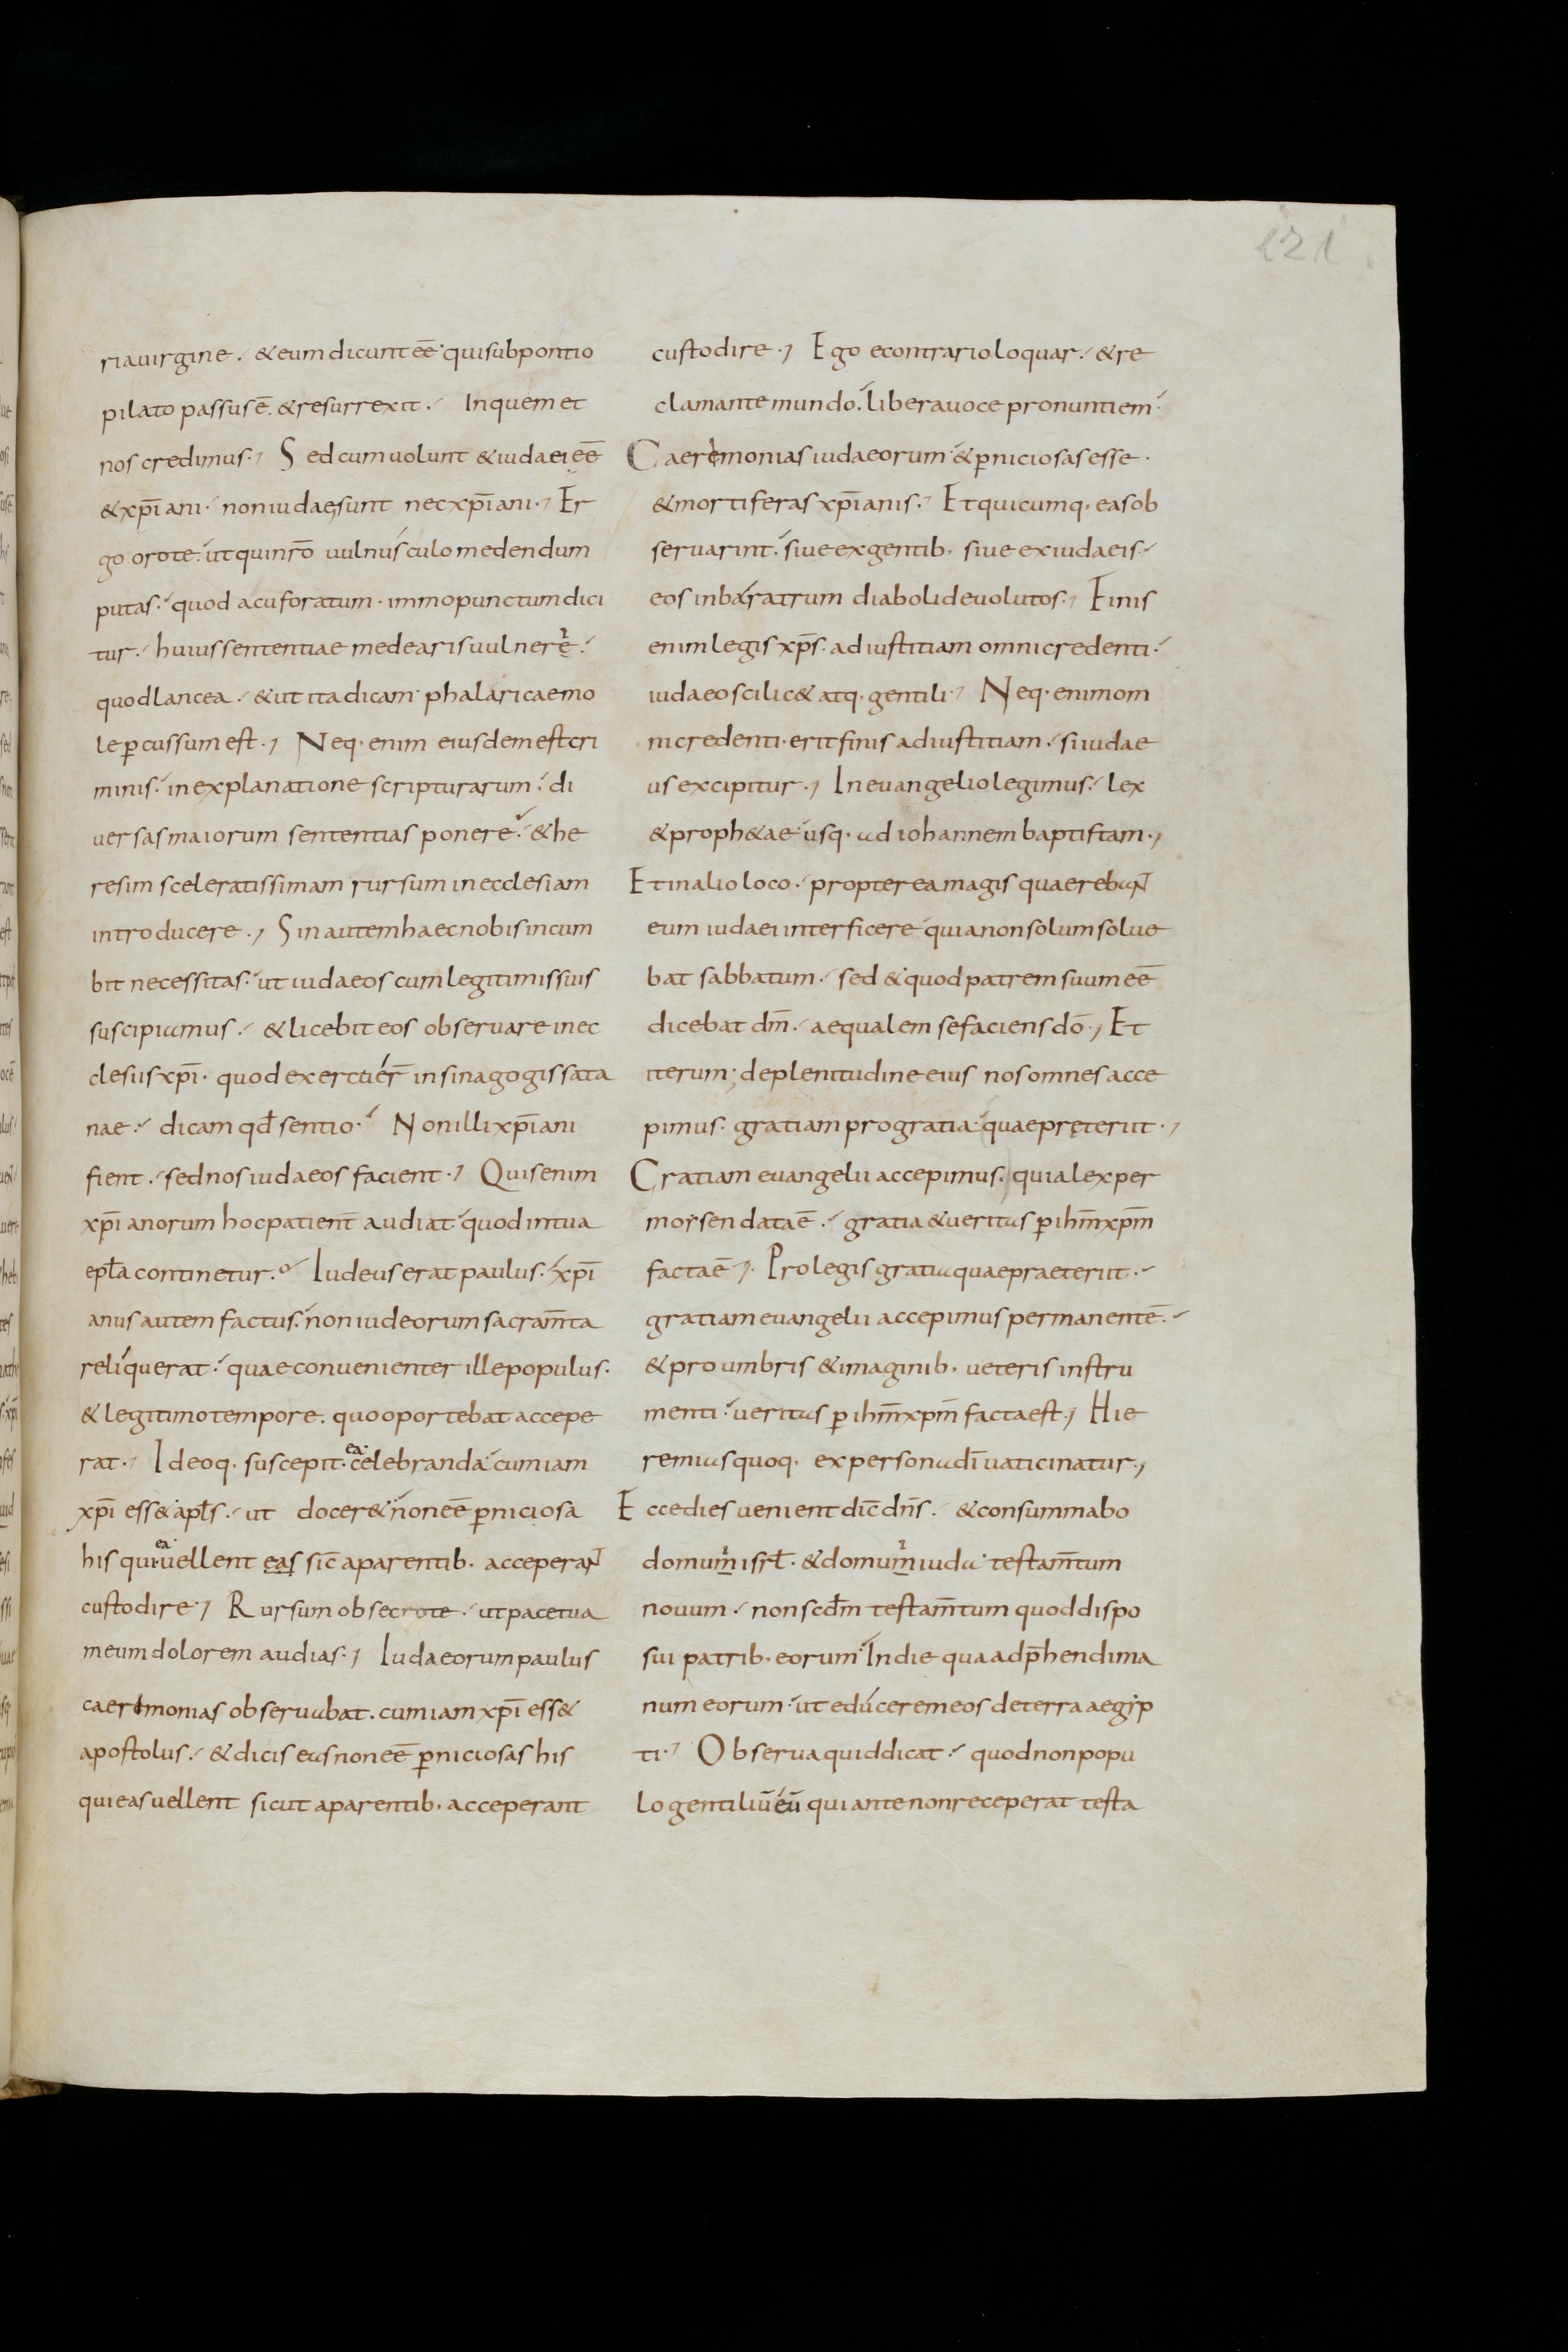 121
ria uirgine. & eum dicunt eē qui sub pontio
pilato passus ē. & resurrexit. In quem et
nos credimus. Sed cum uolunt & iudaei eē
& xp̄iani. non iudaei sunt nec xp̄iani. Er
go oro te. ut qui nr̄o uulnusculo medendum
putas. quod acu foratum. immo punctum dici
tur. huius sententiae medearis uulnerę.
quod lancea. & ut ita dicam phalaricae mo
le p̱cussum est. Neq. enim eiusdem est cri
minis. in explanatione scripturarum. di
uersas maiorum sententias ponere. & he
resim sceleratissimam rursum in ecclesiam
introducere. Sin autem haec nobis incum
bit necessitas. ut iudaeos cum legitimis suis
suscipiamus. & licebit eos obseruare in ec
clesiis xp̄i. quod exercuer̄ in sinagogis sata
nae. dicam qđ sentio. Non illi xp̄iani
fient. sed nos iudaeos facient. Quis enim
xp̄ianorum hoc patient̄ audiat quod in tua
epl̄a continetur. Iudeus erat paulus. xp̄i
anus autem factus. non iudeorum sacram̄ta
reliquerat. quae conuenienter ille populus.
& legitimo tempore. quo oportebat accepe
rat. Ideoq. suscepit. ea celebranda cum iam
xp̄i ess& apl̄s. ut docer& non eē p̱niciosa
his qui ea uellent eas sic̄ a parentib. acceperant
custodire. Rursum obsecro te. ut pace tua
meum dolorem audias. Iudaeorum paulus
caeremonias obseruabat. cum iam xp̄i ess&
apostolus. & dicis eas non eē p̱niciosas his
qui eas uellent sicut a parentib. acceperant
custodire. Ego e contrario loquar. & re
clamante mundo. libera uoce pronuntiem
Caerimonias iudaeorum & p̱niciosas esse.
& mortiferas xp̄ianis. Et quicumq. eas ob
seruarint. siue ex gentib. siue ex iudaeis.
eos in baratrum diaboli deuolutos. Finis
enim legis xp̄s. ad iustitiam omni credenti.
iudaeo scilic& atq. gentili. Neq. enim om
ni credenti. erit finis ad iustitiam. si iudae
us excipitur. In euangelio legimus. lex
& proph&ae usq. ad iohannem baptistam.
Et in alio loco. propterea magis quaerebant
eum iudaei interficere quia non solum solue
bat sabbatum. sed & quod patrem suum eē
dicebat dm̄. aequalem se faciens dō. Et
iterum. de plenitudine eius nos omnes acce
pimus. gratiam pro gratia quae pręteriit.
Gratiam euangelii accepimus. quia lex per
morsen data ē. gratia & ueritas p̱ ihm̄ xpm̄
facta ē. Pro legis gratia quae praeteriit.
gratiam euangelii accepimus permanentē.
& pro umbris & imaginib. ueteris instru
menti. ueritas p̱ ihm̄ xpm̄ facta est. Hie
remias quoq. ex persona dī uaticinatur.
Ecce dies uenient dic̄ dn̄s. & consummabo
domum isrl̄. & domum iuda testam̄tum
nouum. non scđm testam̄tum quod dispo
sui patrib. eorum In die qua adp̄hendi ma
num eorum. ut educerem eos de terra aegip
ti. Obserua quid dicat. quod non popu
lo gentiliū eū qui ante non receperat testa